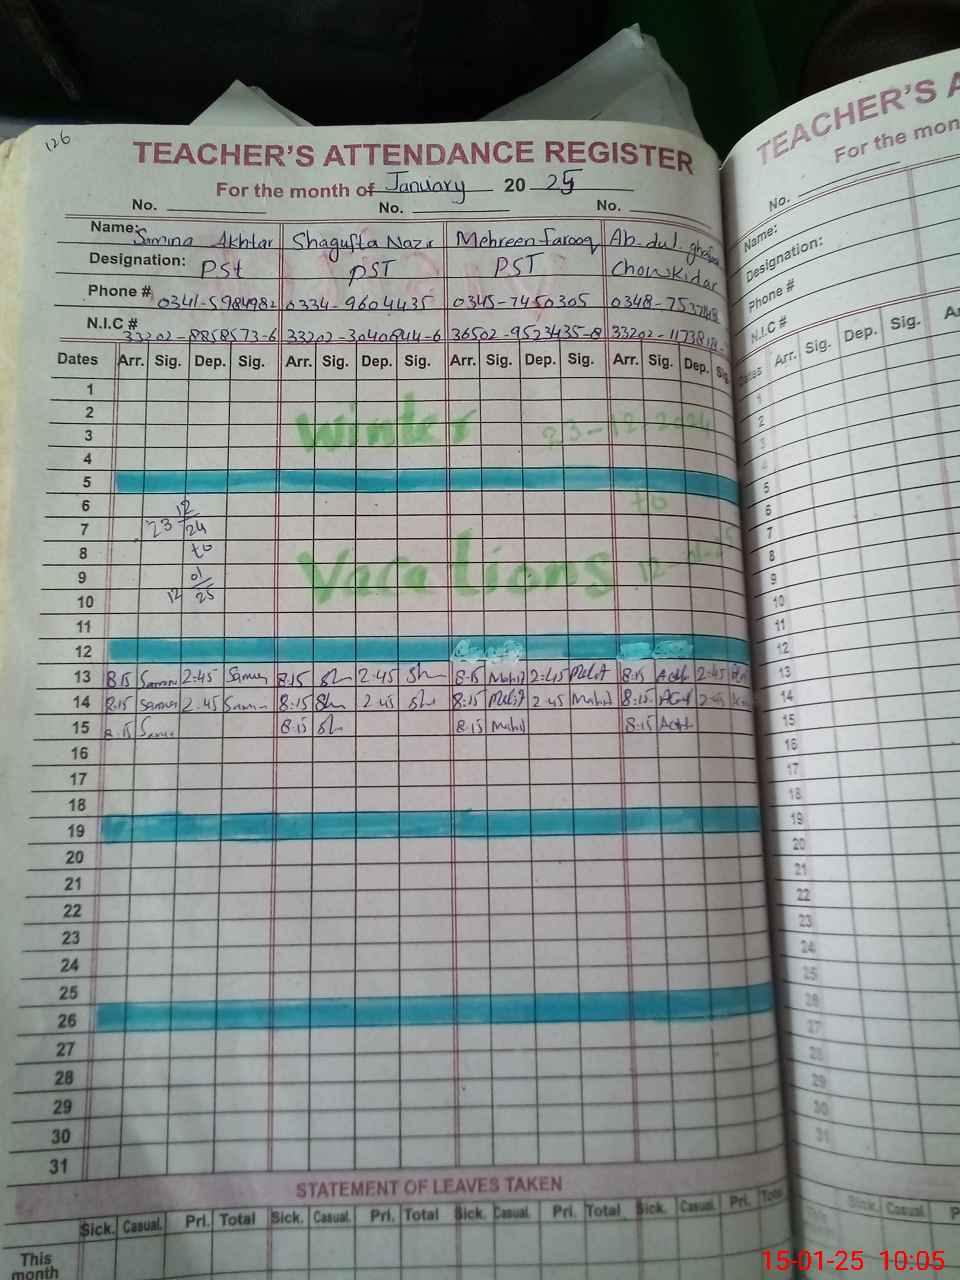 126
TEACHER'S ATTENDANCE REGISTER
For the month of January 20 25
No. No. No.
Name: Samina Akhtar Shagufta Nazir Mehreen farooq Ab-dul-ghafoor
Designation: PSt PST PST Chowkidar
Phone # 0341-5984982 0334-9604435 0345-7450305
N.I.C # 33202-8858573-6 33202-3040844-6 36502-9523435-8
Dates Arr. Sig. Dep. Sig. Arr. Sig. Dep. Sig. Arr. Sig. Dep. Sig. Arr. Sig. Dep. Sig.
1
2
3 Winter 23-12-2024
4
5
6 12 to
7 23 24
8 to
9 01 Vacations
10 12 25
11
12
13 8:15 2:45 8:15 Sh 2:45 Sh 8:15 2:45 8:15 2:45
14 8:15 2:45 8:15 Sh 2:45 Sh 8:15 2:45 8:15 2:45
15 8:15 8:15 Sh 8:15 8:15
16
17
18
19
20
21
22
23
24
25
26
27
28
29
30
31
STATEMENT OF LEAVES TAKEN
Sick. Casual. Pri. Total Sick. Casual. Pri. Total Sick. Casual. Pri. Total Sick. Casual. Pri. Total
This
month
TEACHER'S A
For the mon
No.
Name:
Designation:
Phone #
N.I.C #
Dates Arr. Sig. Dep. Sig.
1
2
3
4
5
6
7
8
9
10
11
12
13
14
15
16
17
18
19
20
21
22
23
24
25
26
27
28
29
30
31
Sick. Casual.
15-01-25 10:05